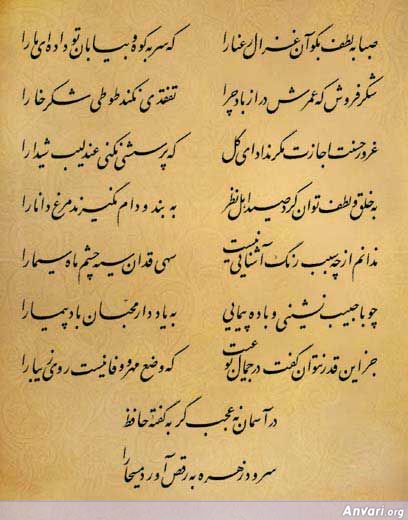 صبا به لطف بگو آن غزال رعنا را که سر به کوه و بیابان تو داده‌ای ما را
شکرفروش که عمرش دراز باد چرا تفقدی نکند طوطی شکرخا را
غرور حسنت اجازت مگر نداد ای گل که پرسشی نکنی عندلیب شیدا را
به خلق و لطف توان کرد صید اهل نظر به بند و دام نگیرند مرغ دانا را
ندانم از چه سبب رنگ آشنایی نیست سهی قدان سیه چشم ماه سیما را
چو با حبیب نشینی و باده پیمایی به یاد دار محبان بادپیما را
جز این قدر نتوان گفت در جمال تو عیب که وضع مهر و وفا نیست روی زیبا را
در آسمان نه عجب گر به گفته حافظ
سرود زهره به رقص آورد مسیحا را
Anvari.org